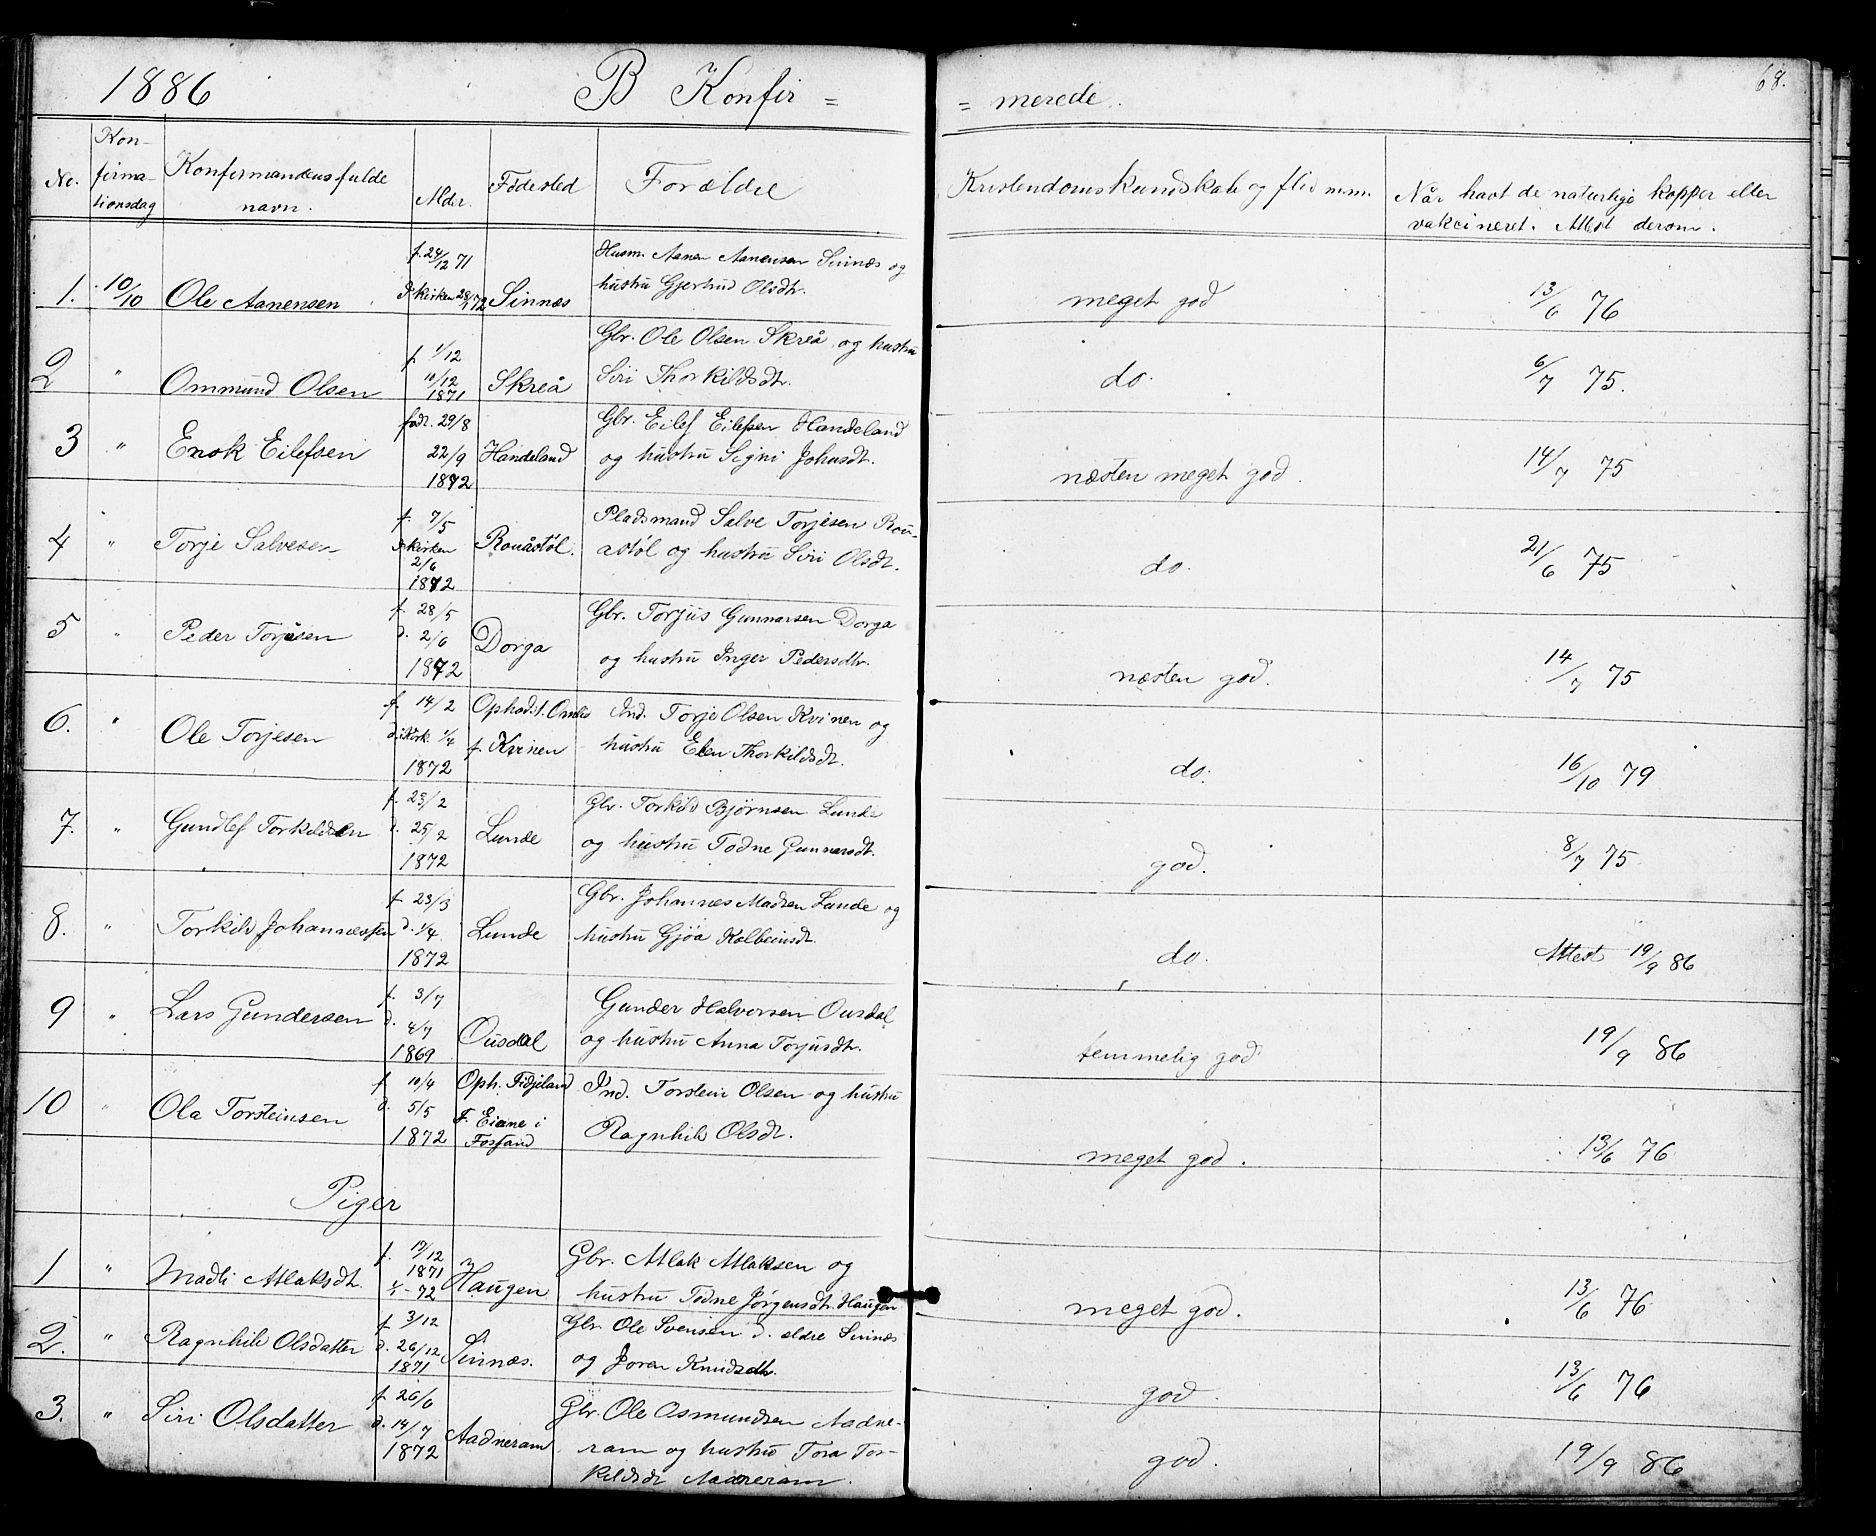 1886 B Konfir = = merede. 68.
No. Kon- firma- tionsdag Konfirmandens fulde navn. Alder. Födested Forældre Kristendomskundskab og flid m.m. Når havt de naturlige kopper eller vakcineret. Attest derom.
f. 24/12 71 Husm. Aanen Aanensen Sinnæs og
1. 10/10 Ole Aanensen d. kirken 28/1 72 Sinnæs hustru Gjertrud Olsdt. meget god 13/6 76
f. 1/12 Gbr. Ole Olsen Skreå og hustru
2 " Ommund Olsen 10/12 1871 Skreå Siri Thorkildsdt. do. 6/7 75.
födt. 29/8 Gbr. Eilef Eilefsen Handeland
3 " Enok Eilefsen 22/9 1872 Handeland og hustru Signi Johnsdt. næsten meget god. 14/7 75
f. 7/5 Pladsmand Salve Torjesen Rou-
4 " Torje Salvesen d. kirken 2/6 1872 Rouåstöl. astöl og hustru Siri Olsdt. do. 21/6 75
f. 28/5 Gbr. Torjus Gunnarsen Dorga
5 " Peder Torjesen d. 2/6 1872 Dorga og hustru Inger Pedersdtr. næsten god. 14/7 75
f. 14/2 Ophold. Ind. Torje Olsen Kvinen og
6. " Ole Torjesen d. i Kirk. 1/4 1872 f. Kvinen hustru Elen Thorkildsdt. do. 16/10 79
f. 23/2 Gbr. Torkild Bjørnsen Lunde
7. " Gundlef Torkildsen d. 25/2 1872 Lunde og hustru Todne Gunnarsdt. god. 8/7 75
f. 23/3 Gbr. Johannes Madsen Lunde og
8. " Torkild Johannessen d. 1/4 1872 Lunde hustru Gjöa Kolbeinsdt. do. Attest 19/9 86
f. 3/7 Gunder Halvorsen Ousdal
9 " Lars Gundersen d. 4/7 1869 Ousdal og hustru Anna Torjusdt. temmelig god 19/9 86
f. 10/4 Oph. Fidjeland Ind. Torstein Olsen og hustru
10 " Ola Torsteinsen d. 5/5 1872 F. Eiane i Fossand Ragnhild Olsdt. meget god. 13/6 76
Piger
f. 17/12 1871 Gbr. Atlak Atlaksen og
1 " Madli Atlaksdt. 72 Haugen hustru Todne Jörgensdt. Haugen meget god. 13/6 76
f. 3/12 Gbr. Ole Svensen d. eldre Sinnæs
2. " Ragnhild Olsdatter d. 26/12 1871 Sinnæs. og Joran Knudsdtr. god. 13/6 76
f. 26/6 Gbr. Ole Osmundsen Aadne-
3. " Siri Olsdatter d. 14/7 1872 Aadneram ram og hustru Tora Tor- god. 19/9 86
kildsdt Aadneram.